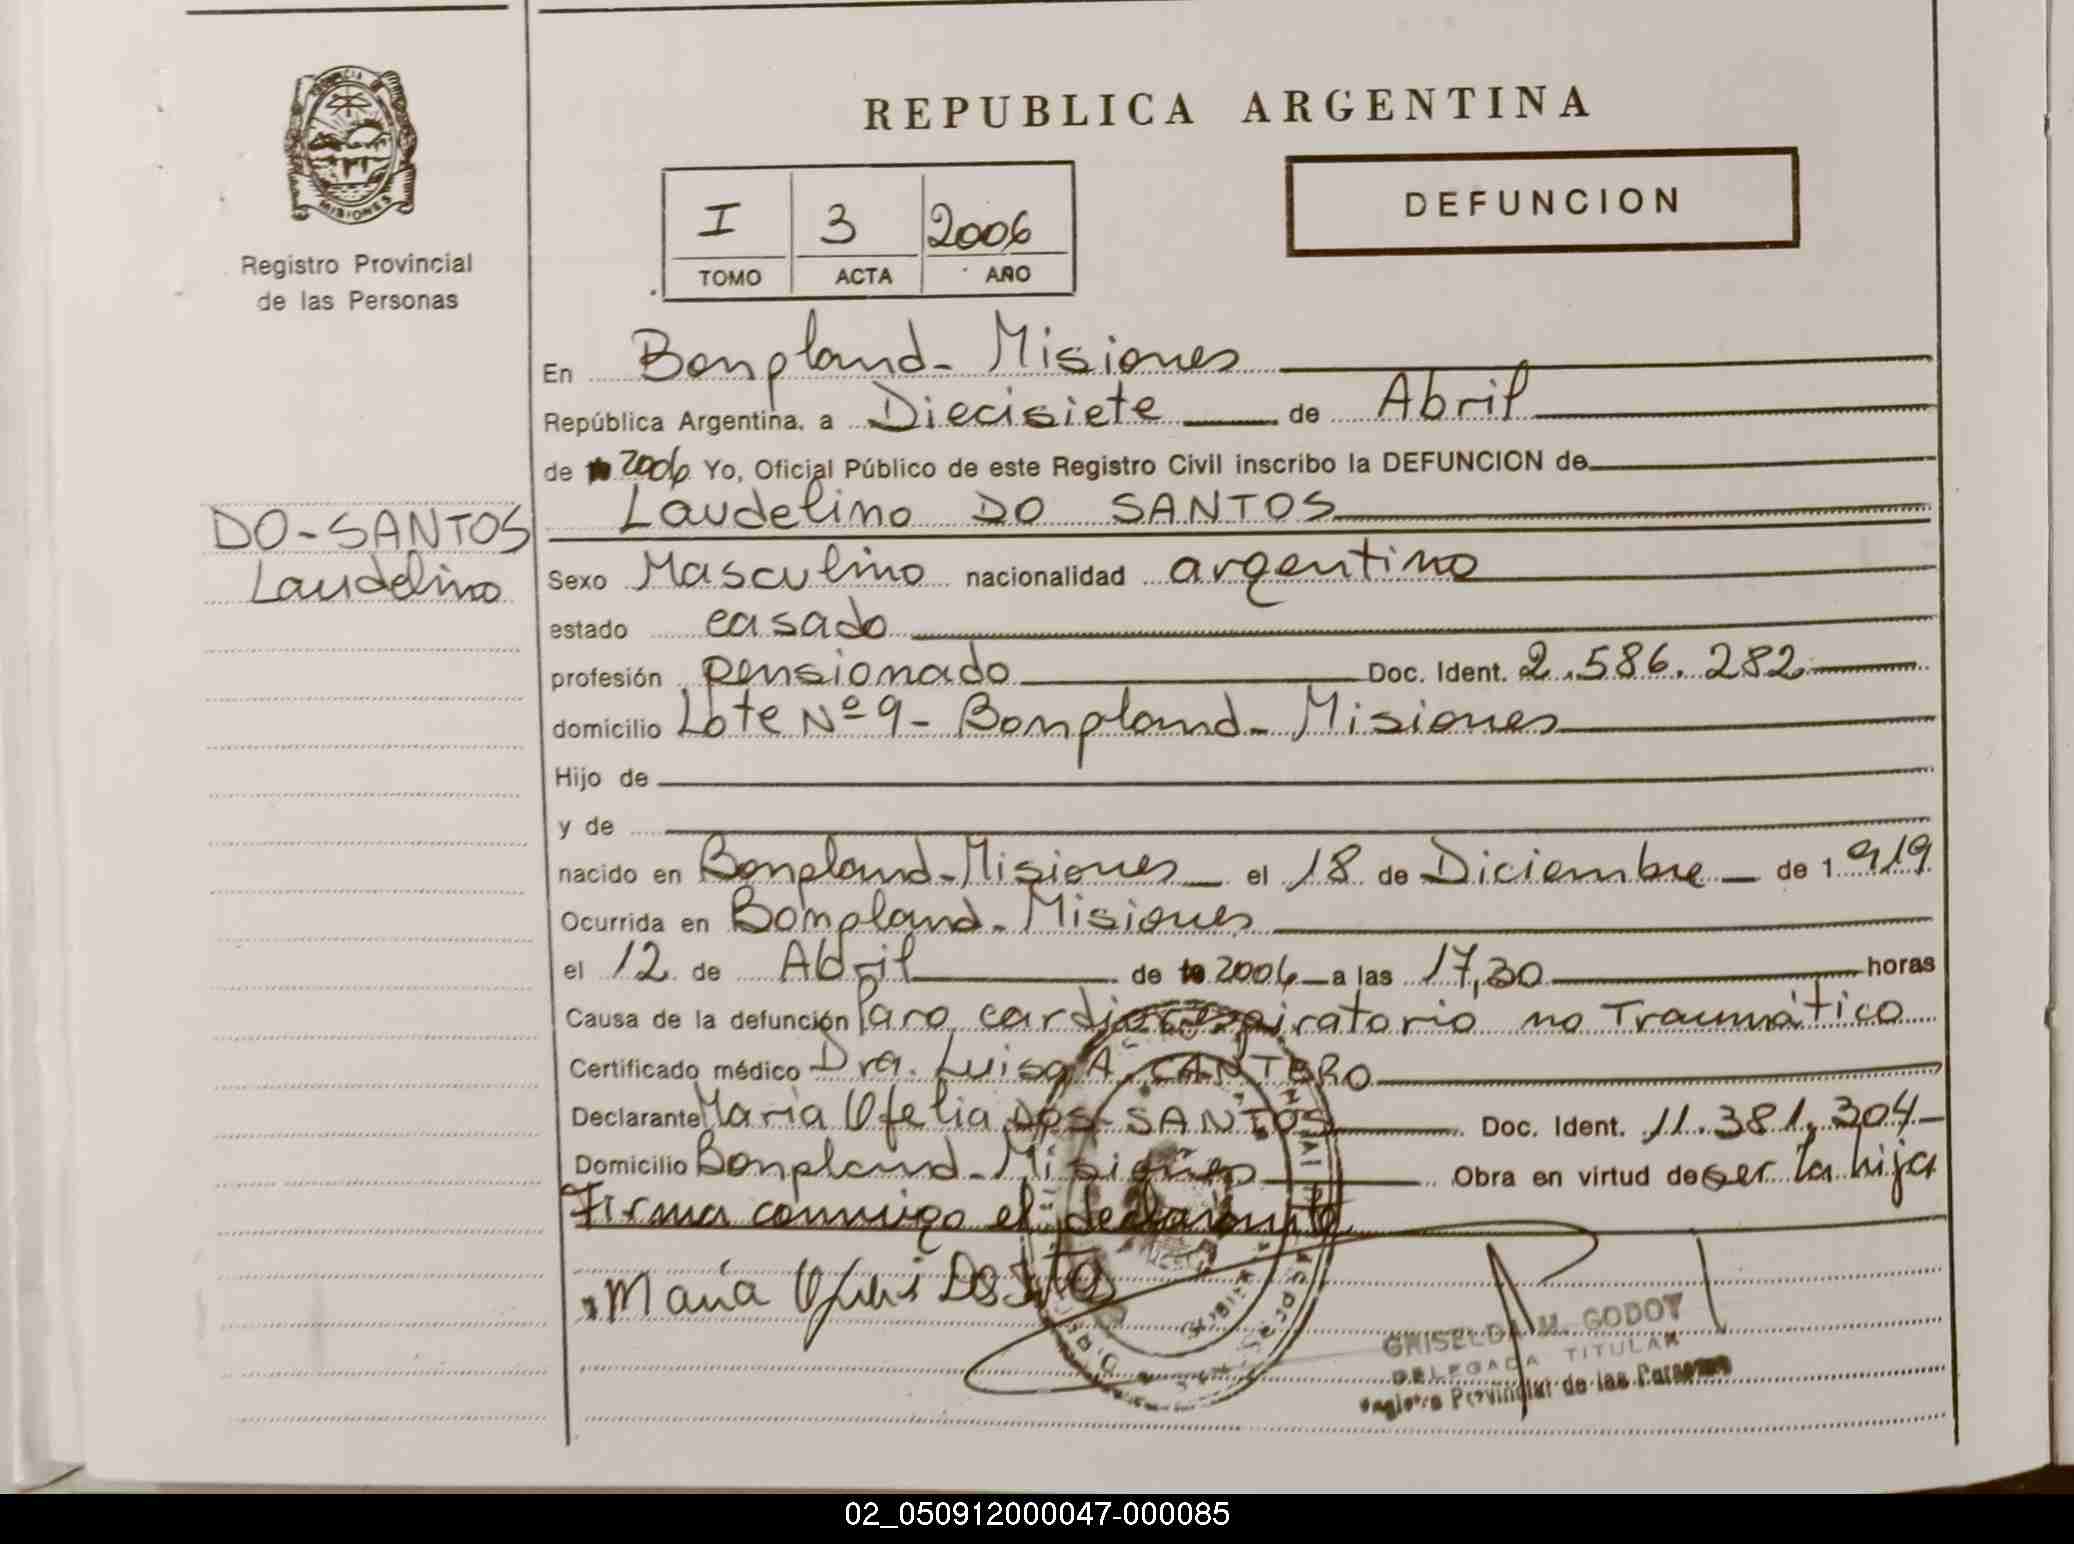 PROVINCIA
MISIONES
Registro Provincial
de las Personas
DO-SANTOS
Laudelino
REPUBLICA ARGENTINA
DEFUNCION
I 3 2006
TOMO ACTA AÑO
En Bonpland - Misiones
República Argentina, a Diecisiete de Abril
de 2006 Yo, Oficial Público de este Registro Civil inscribo la DEFUNCION de
Laudelino DO SANTOS
Sexo Masculino nacionalidad argentino
estado casado
profesión pensionado Doc. Ident. 2.586.282
domicilio Lote Nº 9 - Bonpland - Misiones
Hijo de
y de
nacido en Bonpland - Misiones el 18 de Diciembre de 1 919
Ocurrida en Bonpland - Misiones
el 12 de Abril de 2006 a las 17,30 horas
Causa de la defunción Paro cardiorespiratorio no Traumático
Certificado médico Dra. Luisa A. CANTERO
Declarante María Ofelia DOS SANTOS Doc. Ident. 11.381.304
Domicilio Bonpland - Misiones Obra en virtud de ser la hija
Firma conmigo el declarante
María
GRISELDA M. GODOY
DELEGADA TITULAR
Registro Provincial de las Personas
02_050912000047-000085